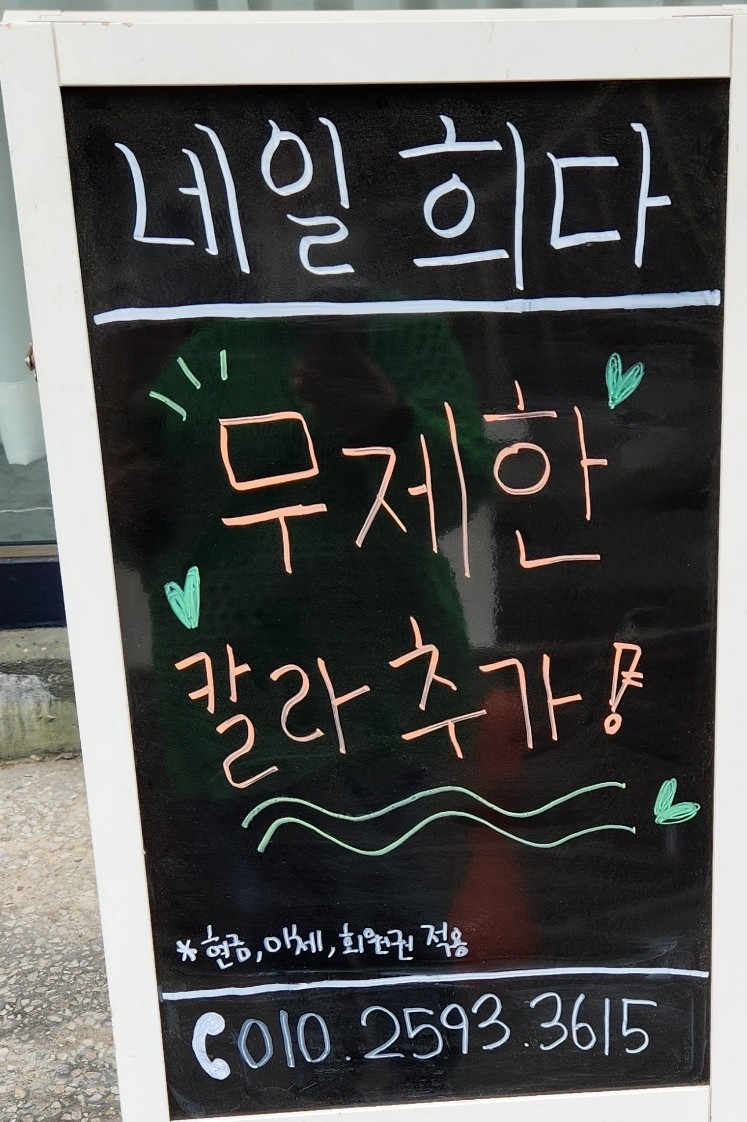 네일 희다
무제한
칼라 추가!
*현금, 이체, 회원권 적용
010.2593.3615